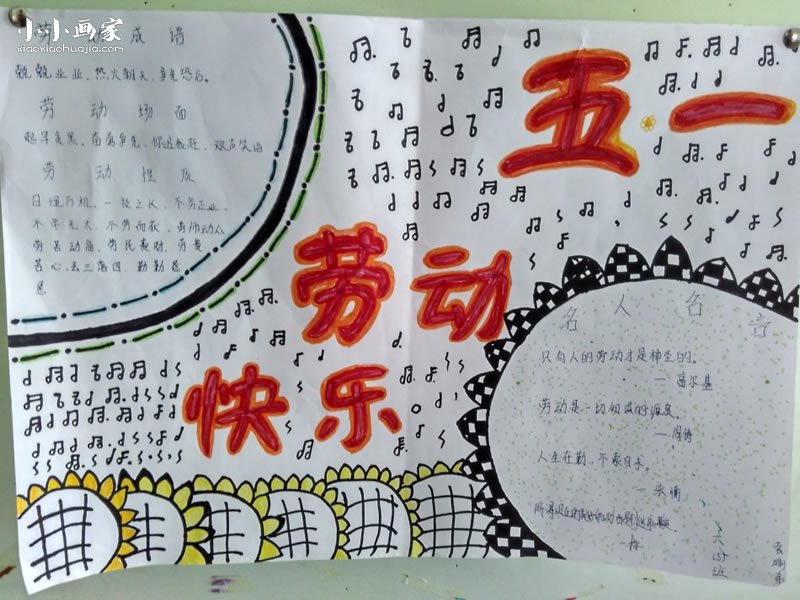 小小画家
xiaoxiaohuajia.com
劳 成语
兢兢业业、热火朝天、争先恐后。
劳动场面
起早贪黑、奋勇争先、你追我赶、欢声笑语
劳动性质
日理万机、一技之长、不务正业、
不学无术、不劳而获、劳师动众
劳苦功高、劳民伤财、劳
苦心、丢三落四、勤勤恳
恳
五·一
劳动
快乐
名人名言
只有人的劳动才是神圣的。
—高尔基
劳动是一切知识的源泉。
—陶铸
人生在勤,不索何获。
张衡
六(5)班